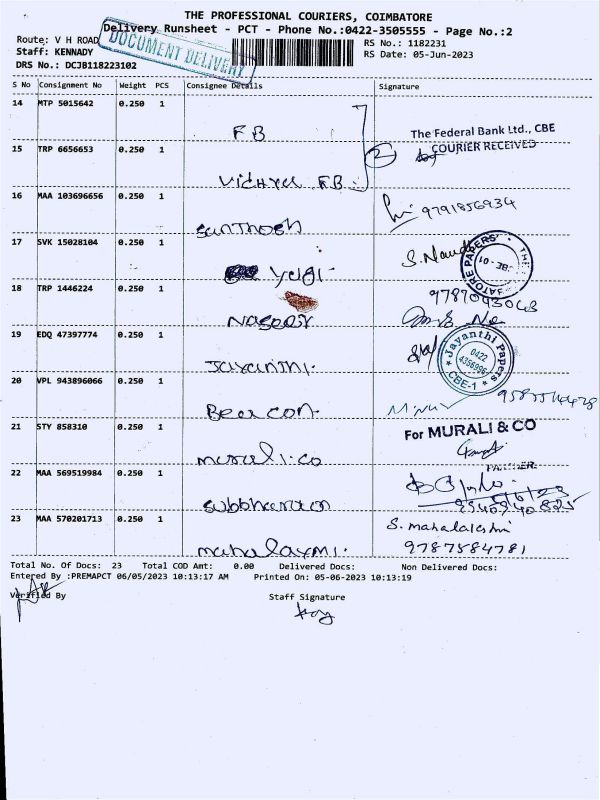 THE PROFESSIONAL COURIERS, COIMBATORE
Delivery Runsheet - PCT - Phone No.:0422-3505555 - Page No.:2
Route: V H ROAD
DOCUMENT DELIVERY
RS No.: 1182231
Staff: KENNADY
RS Date: 05-Jun-2023
DRS No.: DCJB118223102
S No Consignment No Weight PCS Consignee Details Signature
14 MTP 5015642 0.250 1
FB
The Federal Bank Ltd., CBE
15 TRP 6656653 0.250 1
2
COURIER RECEIVED
Vidhya FB
16 MAA 103696656 0.250 1
9791856934
Santhosh
17 SVK 15028104 0.250 1
yugi
18 TRP 1446224 0.250 1
Naseer
19 EDQ 47397774 0.250 1
Jayanthi
Jayanthi Papers
0422
CBE-1
20 VPL 943896066 0.250 1
Beacon
21 STY 858310 0.250 1
For MURALI & CO
murali.co
22 MAA 569519984 0.250 1
PARTNER
23 MAA 570201713 0.250 1
S. mahalakshmi
mahalaxmi.
9787584781
Total No. Of Docs: 23 Total COD Amt: 0.00 Delivered Docs: Non Delivered Docs:
Entered By :PREMAPCT 06/05/2023 10:13:17 AM Printed On: 05-06-2023 10:13:19
Verified By
Staff Signature